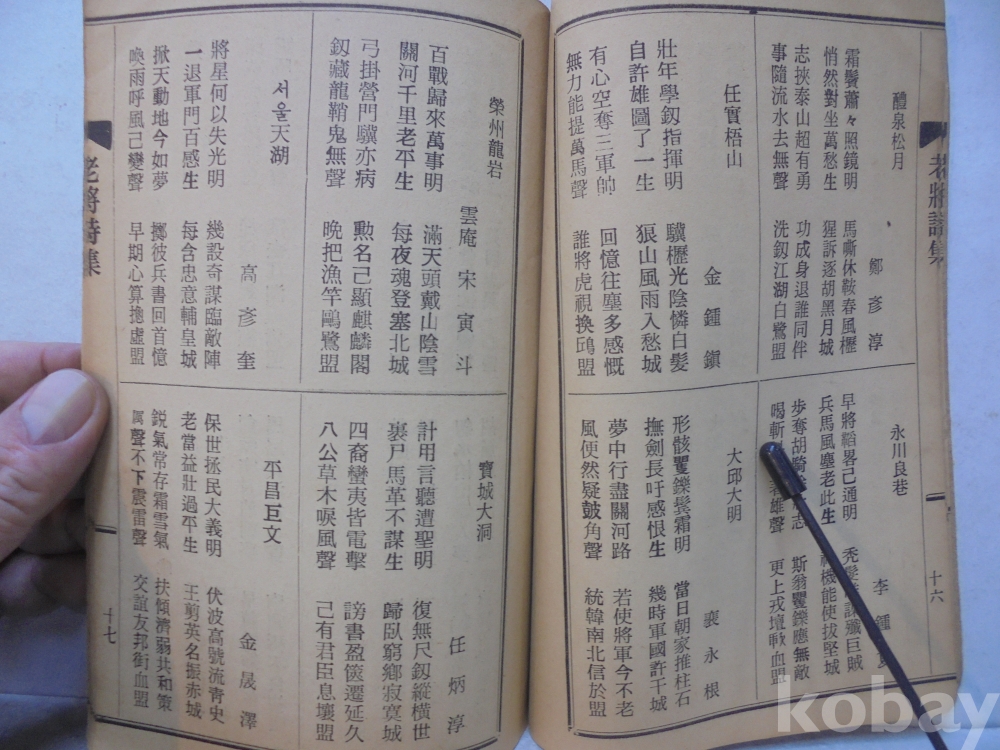 老將詩集
醴泉松月
鄭彥淳
霜鬢蕭々照鏡明 馬嘶休鞍春風櫪
悄然對坐萬愁生 猩訴逐胡黑月城
志挾泰山超有勇 功成身退誰同伴
事隨流水去無聲 洗釼江湖白鷺盟
任實梧山
金鍾鎭
壯年學釼指揮明 驥櫪光陰憐白髮
自許雄圖了一生 狼山風雨入愁城
有心空奪三軍帥 回憶往塵多感慨
無力能提萬馬聲 誰將虎視換鷗盟
永川良巷
李鍾
早將韜畧己通明 禿髮 謀殲巨賊
兵馬風塵老此生 機能使拔堅城
步奪胡騎 志 斯翁矍鑠應無敵
喝斬 雄聲 更上戎壇歃血盟
大邱大明
裵永根
形骸矍鑠鬂霜明 當日朝家推柱石
撫劍長吁感恨生 幾時軍國許干城
夢中行盡關河路 若使將軍今不老
風便然疑鼓角聲 統韓南北信於盟
十六
榮州龍岩
雲庵 宋寅斗
百戰歸來萬事明 滿天頭戴山陰雪
關河千里老平生 每夜魂登塞北城
弓掛營門驥亦病 勲名己顯麒麟閣
釼藏龍鞘鬼無聲 晚把漁竿鷗鷺盟
서울天湖
高彥奎
將星何以失光明 幾設奇謀臨敵陣
一退軍門百感生 每含忠意輔皇城
掀天動地今如夢 擲彼兵書回首憶
喚雨呼風己變聲 早期心算擔虛盟
寶城大洞
任炳淳
計用言聽遭聖明 復無尺釼縱橫世
裹尸馬革不謀生 歸臥窮鄉寂寞城
四裔蠻夷皆電擊 謗書盈篋遷延久
八公草木唳風聲 己有君臣息壤盟
平昌巨文
金晟澤
保世拯民大義明 伏波高號流青史
老當益壯過平生 王剪英名振赤城
銳氣常存霜雪氣 扶傾濟弱共和策
厲聲不下震雷聲 交誼友邦街血盟
老將詩集
十七
kobay